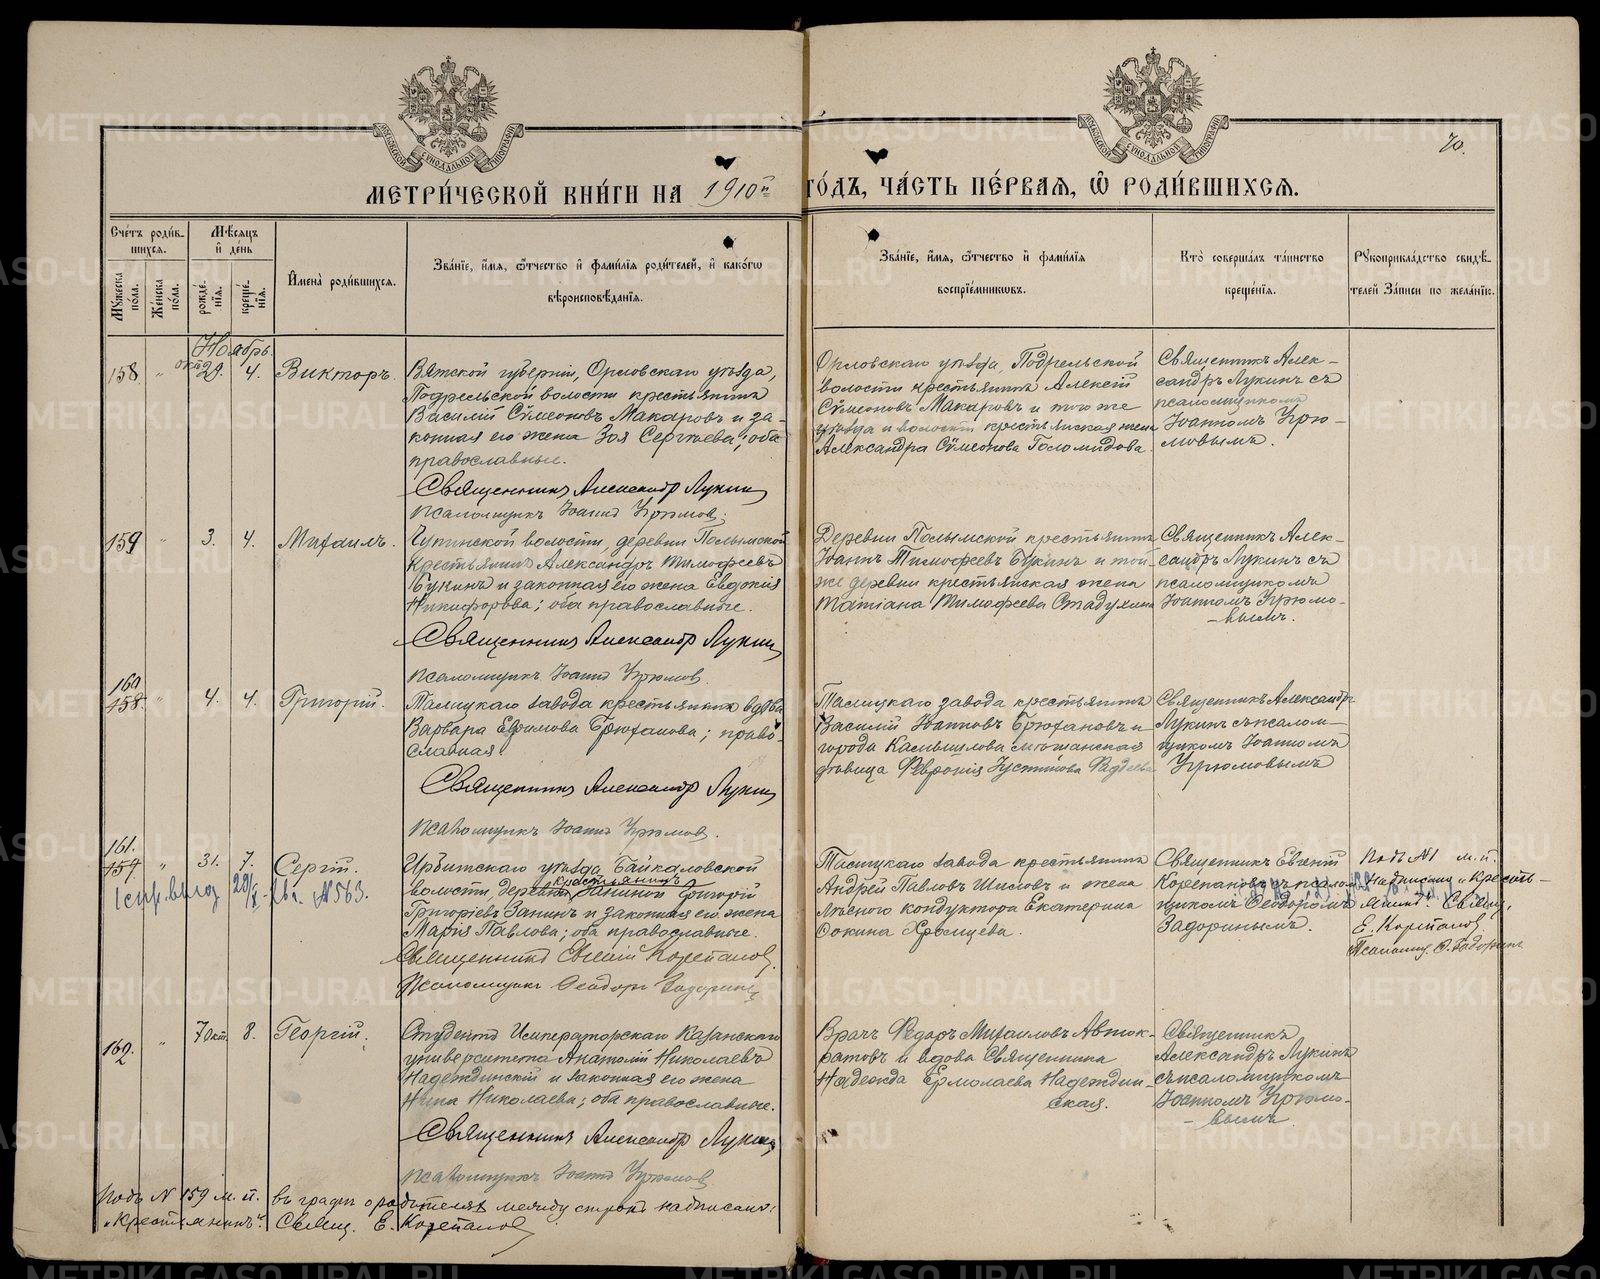 70.
МЕТРИ́ЧЕСКОЙ КНИ́ГИ НА 1910й ГО́ДЪ, ЧА́СТЬ ПЕ́РВАЯ, Ѡ РОДИ́ВШИХСЯ.
Сче́тъ роди́вшихся.
Му́жеска по́ла.
Же́нска по́ла.
Мѣ́сяцъ и҆ де́нь
рожде́нїя.
креще́нїя.
И҆мена̀ роди́вшихся.
Зва́нїе, и҆́мя, ѻ҆́тчество и҆ фами́лїя роди́телей, и҆ како́гѡ
вѣроисповѣ́данїя.
Зва́нїе, и҆́мя, ѻ҆́тчество и҆ фами́лїя
воспрїе́мниковъ.
Кто̀ соверша́лъ та́инство
креще́нїя.
Рꙋкоприкла́дство свидѣ́телей За́писи по жела́нїю.
Ноябрь.
158 " окт. 29. 4. Викторъ.
Вятской губерніи, Орловскаго уѣзда,
Подрельской волости крестьянинъ
Василій Сѵмеоновъ Макаровъ и за-
конная его жена Зоя Сергѣева; оба
православные.
Священникъ Александр Лукин
Псаломщикъ Іоаннъ Угрюмов.
Орловскаго уѣзда, Подрельской
волости крестьянинъ Алексій
Сѵмеоновъ Макаровъ и того же
уѣзда и волости крестьянская жена
Александра Сѵмеонова Голомидова.
Священникъ Алек-
сандръ Лукинъ съ
псаломщикомъ
Іоанномъ Угрю-
мовымъ.
159 " 3. 4. Михаилъ.
волости, деревни
Крестьянинъ Александръ Тимофеевъ
Букинъ и законная его жена Евдокія
Никифорова; оба православные.
Священникъ Александр Лукин
Псаломщикъ Іоаннъ Угрюмов.
Деревни крестьянинъ
Іоаннъ Тимофеевъ Букинъ и той-
же деревни крестьянская жена
Татіана Тимофеева Стадухина
Священникъ Алек-
сандръ Лукинъ съ
псаломщикомъ
Іоанномъ Угрюмо-
вымъ.
160
158. " 4. 4. Григорій.
Талицкаго завода крестьянин вдова
Варвара Евфимова Брюханова; право-
славная.
Священникъ Александр Лукин
Псаломщикъ Іоаннъ Угрюмов.
Талицкаго завода крестьянинъ
Василій Іоанновъ Брюхановъ и
города Камышлова мѣщанская
дѣвица Февронія Фадѣева
Священникъ Александръ
Лукинъ съ псалом-
щикомъ Іоанномъ
Угрюмовымъ
161.
159 " 31. 7. Сергій.
29/X № 563.
Ирбитскаго уѣзда, Байкаловской
крестьянинъ
волости, деревни Заниной Григорій
Григоріевъ Занинъ и законная его жена
Марія Павлова; оба православные.
Священникъ Евгеній Корепанов.
Псаломщикъ Ѳеодоръ Задоринъ
Талицкаго завода крестьянинъ
Андрей Павловъ Шиловъ и жена
лѣсного кондуктора Екатерина
Хромцева.
Священникъ Евгеній
Корепановъ съ псалом-
щикомъ Ѳеодоромъ
Задоринымъ.
Подъ №1 м. п.
Надписано „Кресть-
янинъ". Свящ.
Е. Корепанов
Псаломщ. Ѳ. Задоринъ
162. " 7 окт. 8. Георгій.
Студентъ Императорскаго Казанскаго
университета Анатолій Николаевъ
Надеждинскій и законная его жена
Нина Николаева; оба православные.
Священникъ Александр Лукин
Псаломщикъ Іоаннъ Угрюмов
Врачъ Ѳедоръ Михаиловъ Авток-
ратовъ и вдова Священника
Надежда Ермолаева Надеждин-
ская.
Священникъ
Александръ Лукинъ
съ псаломщикомъ
Іоанномъ Угрюмо-
вымъ.
Подъ № 159 м. п. въ графѣ о родителях между строкъ надписано:
„Крестьянинъ". Свящ. Е. Корепанов